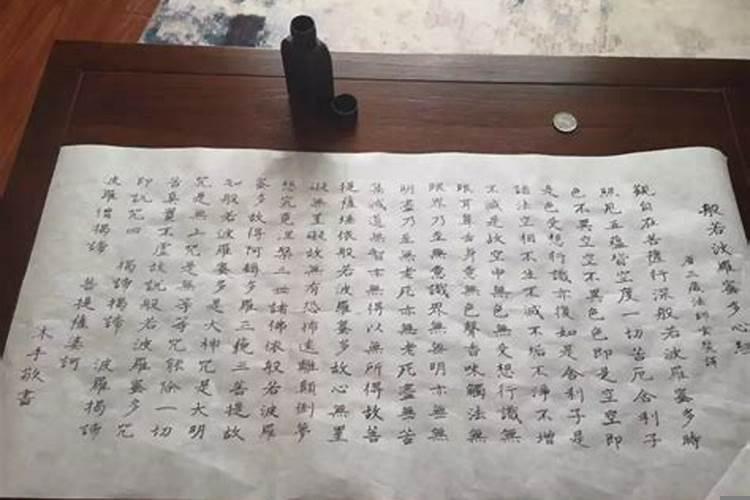 般若波羅蜜多心經
唐三藏法師玄奘譯
觀自在菩薩行深般若波羅蜜多時
照見五蘊皆空度一切苦厄舍利子
色不異空空不異色色即是空空即
是色受想行識亦復如是舍利子是
諸法空相不生不滅不垢不淨不增
不減是故空中無色無受想行識無
眼耳鼻舌身意無色聲香味觸法無
眼界乃至無意識界無無明亦無無
明盡乃至無老死亦無老死盡無苦
集滅道無智亦無得以無所得故菩
提薩埵依般若波羅蜜多故心無罣
礙無罣礙故無有恐怖遠離顛倒夢
想究竟涅槃三世諸佛依般若波羅
蜜多故得阿耨多羅三藐三菩提故
知般若波羅蜜多是大神咒是大明
咒是無上咒是無等等咒能除一切
苦真實不虛故說般若波羅蜜多咒
即說咒曰 揭諦揭諦 波羅揭諦
波羅僧揭諦 菩提薩婆訶
木子敬書